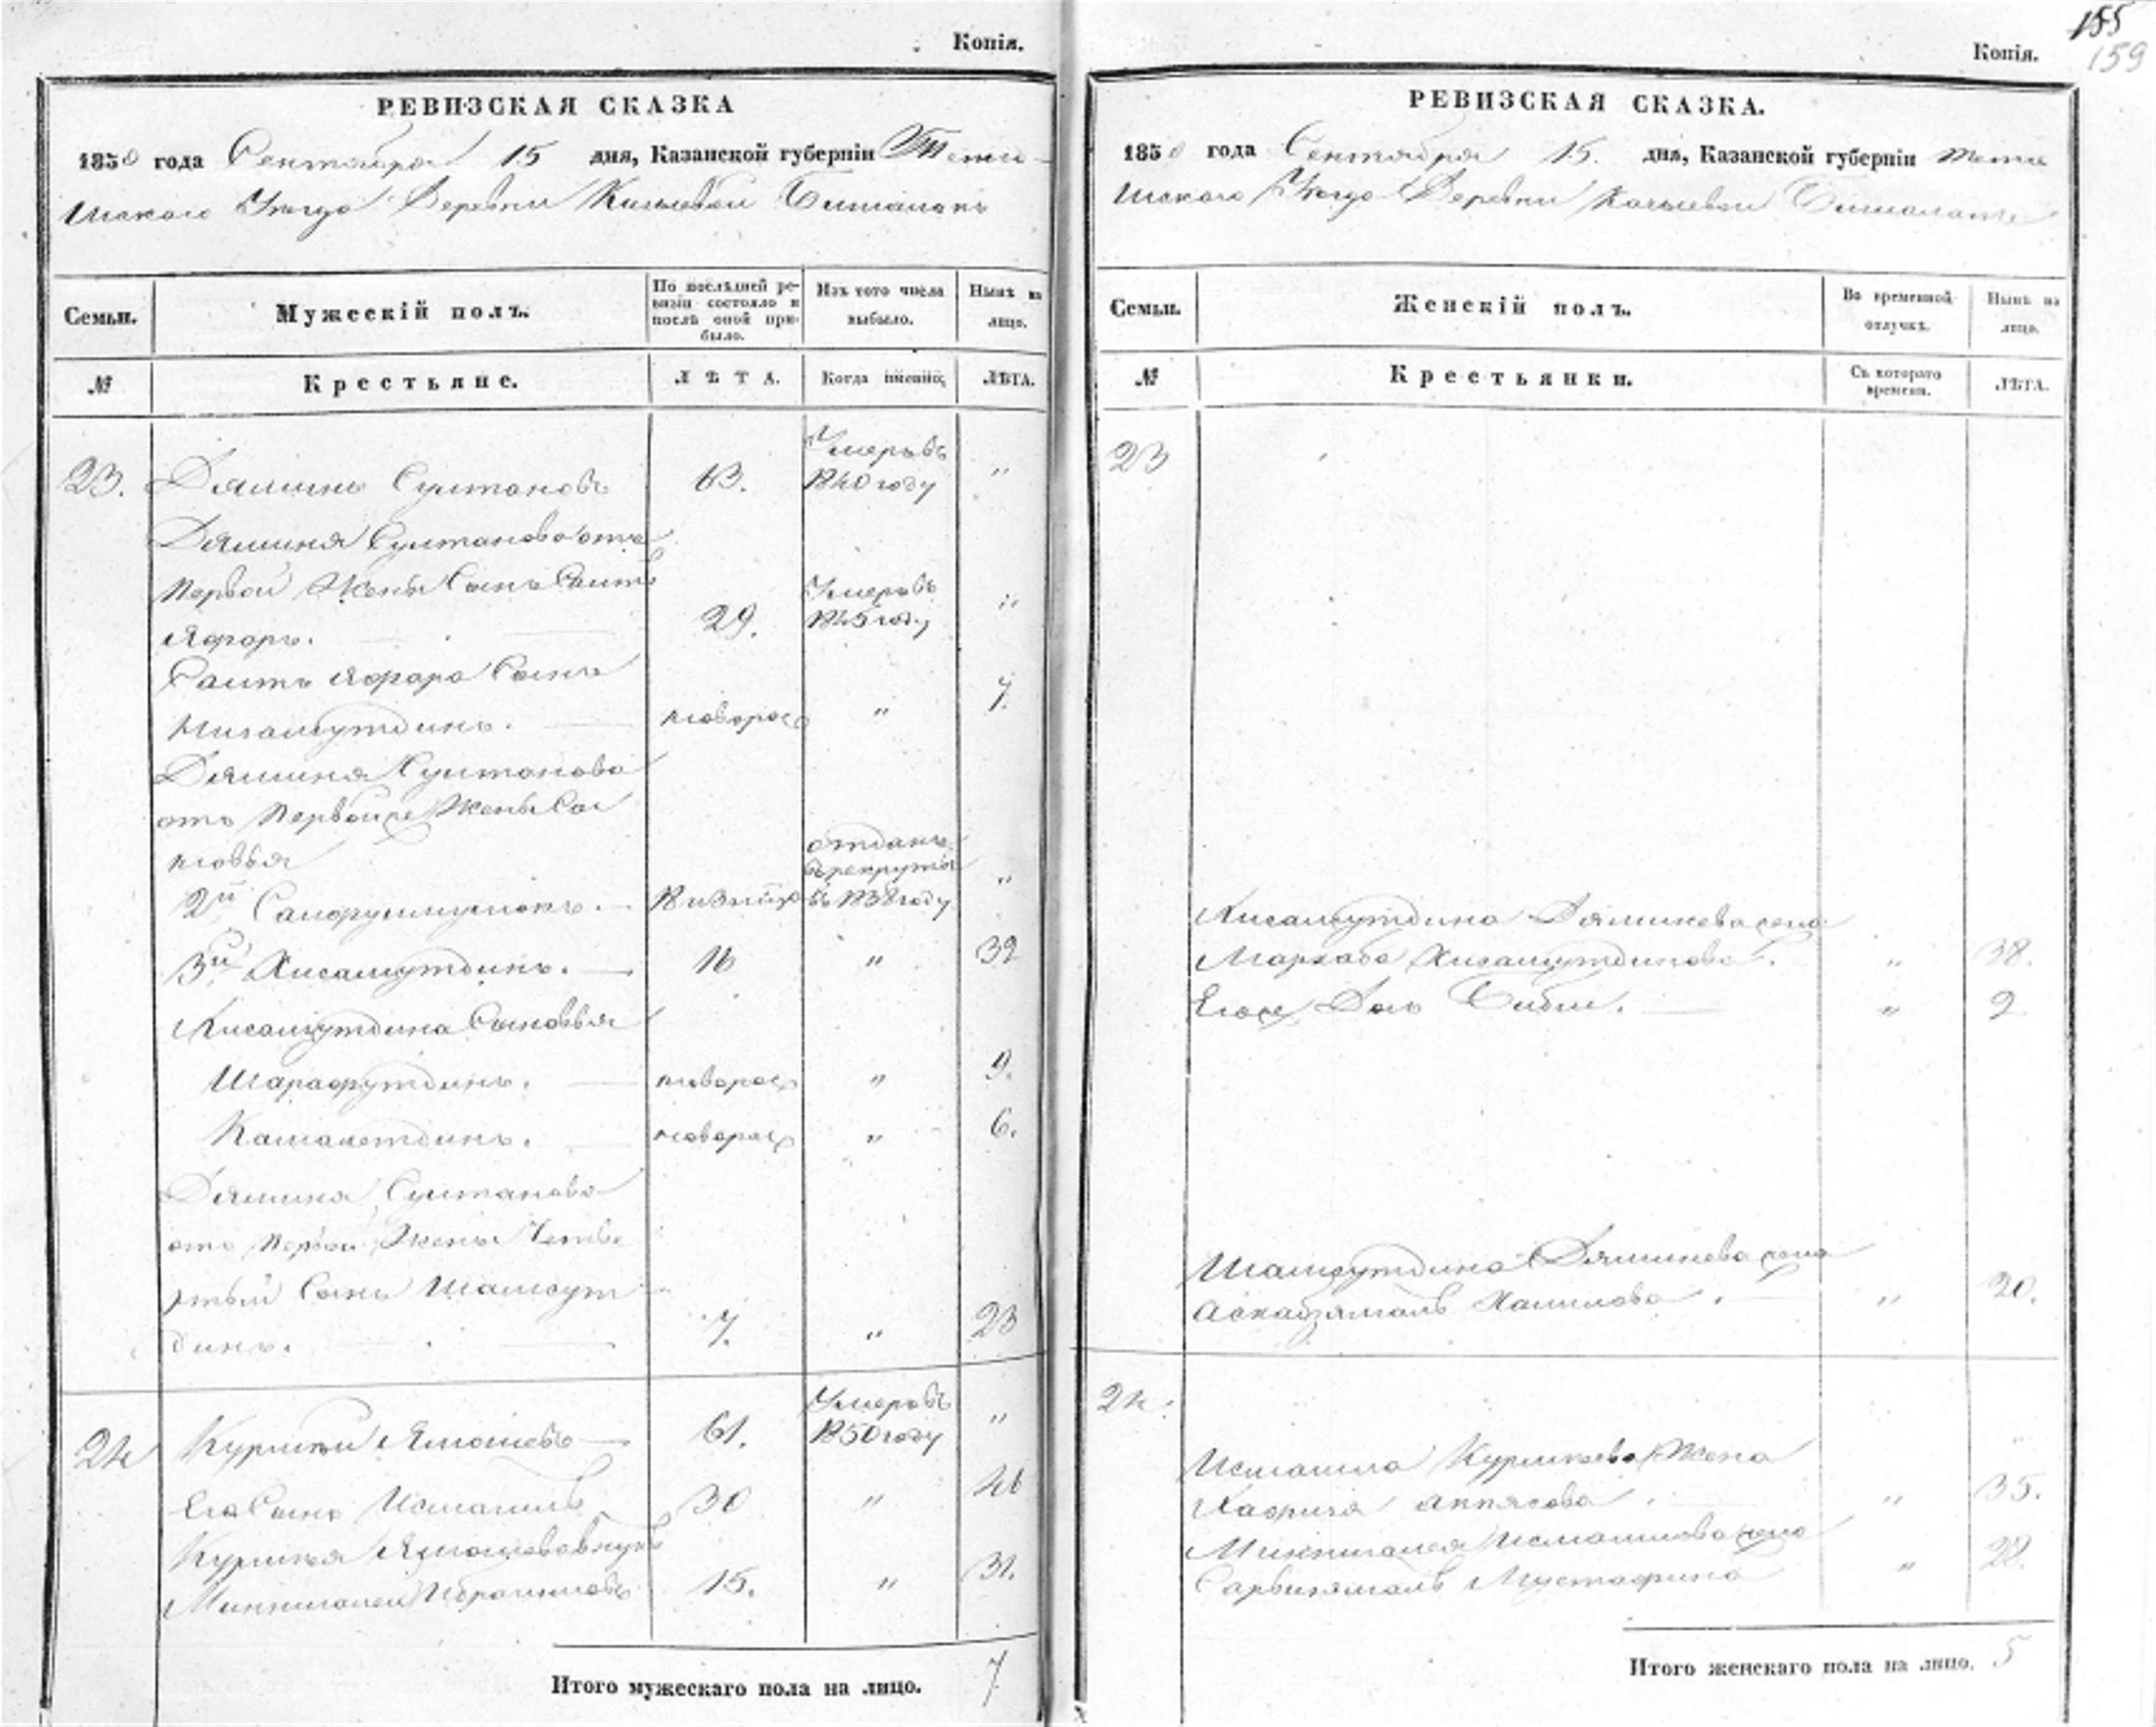 Копія.
РЕВИЗСКАЯ СКАЗКА
1850 года Сентября 15 дня, Казанской губерніи Тетю-
шскаго Уезда Деревни
Семьи.
Мужескій полъ.
По послѣдней ре-
визіи состояло и
послѣ оной при-
было.
Изъ того числа
выбыло.
Нынѣ на
лицо.
№
Крестьяне.
ЛѢТА.
Когда именно,
ЛѢТА.
23. Дяминъ Султановъ 63. Умеръ въ 1840 году "
Дяминя Султанова отъ
первой Жены Сынъ Саитъ
Яфаръ. 29. Умеръ въ 1845 году "
Саитъ Яфара Сынъ
Низамутдинъ. новорож " 7.
Дяминя Султанова
отъ Первой же Жены Сы
новья
2й отданъ в рекруты въ 1838 году "
3й Хисамутдинъ. 16 " 32
Хисамутдина Сыновья
Шарафутдинъ. новорож " 9.
Камалетдинъ. новорож " 6.
Дяминя Султанова
отъ первой Жены Четве
ртый Сынъ Шамсут
динъ. 7. " 23
24 Ямашевъ 61. Умеръ въ 1850 году "
Его Сынъ Исмаилъ 30 " 46
Ямашева внукъ
Ибрагимовъ 15. " 31.
Итого мужескаго пола на лицо. 7
155
159
Копія.
РЕВИЗСКАЯ СКАЗКА.
1850 года Сентября 15. дня, Казанской губерніи Тетю
шскаго Уезда Деревни
Семьи.
Женскій полъ.
Во временной
отлучкѣ.
Нынѣ на
лицо.
№
Крестьянки.
Съ котораго
времени.
ЛѢТА.
23
Хисамутдина Дяминева жена
Мархаба Хисамутдинова. " 38.
Ея же Дочь Биби. " 9
Шамсутдина Дяминева жена
Халилова. " 20.
24.
Исмаила Жена
" 35.
Исмаилова жена
Мустафина " 28.
Итого женскаго пола на лицо. 5